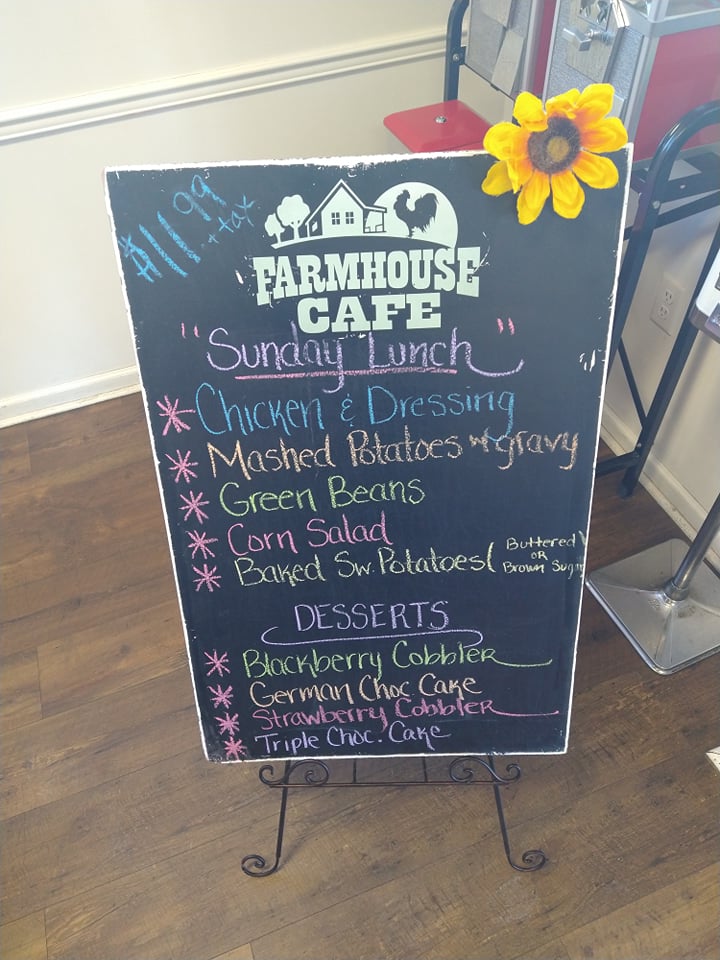 $11.99
+ tax
FARMHOUSE
CAFE
"Sunday Lunch"
* Chicken & Dressing
* Mashed Potatoes w/gravy
* Green Beans
* Corn Salad
* Baked Sw. Potatoes ( Buttered
OR
Brown Sug
DESSERTS
* Blackberry Cobbler
* German Choc Cake
* Strawberry Cobbler
* Triple Choc. Cake